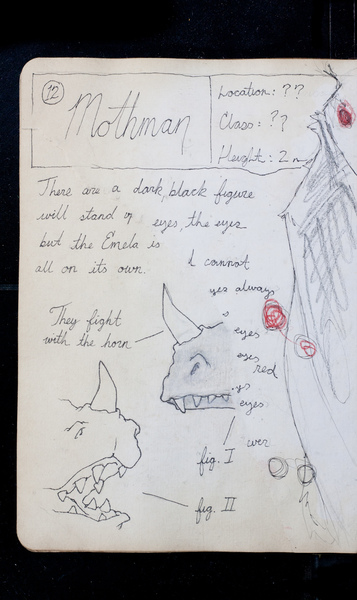 12
Mothman
Location: ??
Class: ??
Height: 2 m
There are a dark, black figure
will stand eyes, the eyes
but the Emela is
all on its own.
I cannot
yes always
s
eyes
They fight
with the horn
eyes
red
ys
eyes
wer
fig. I
fig. II